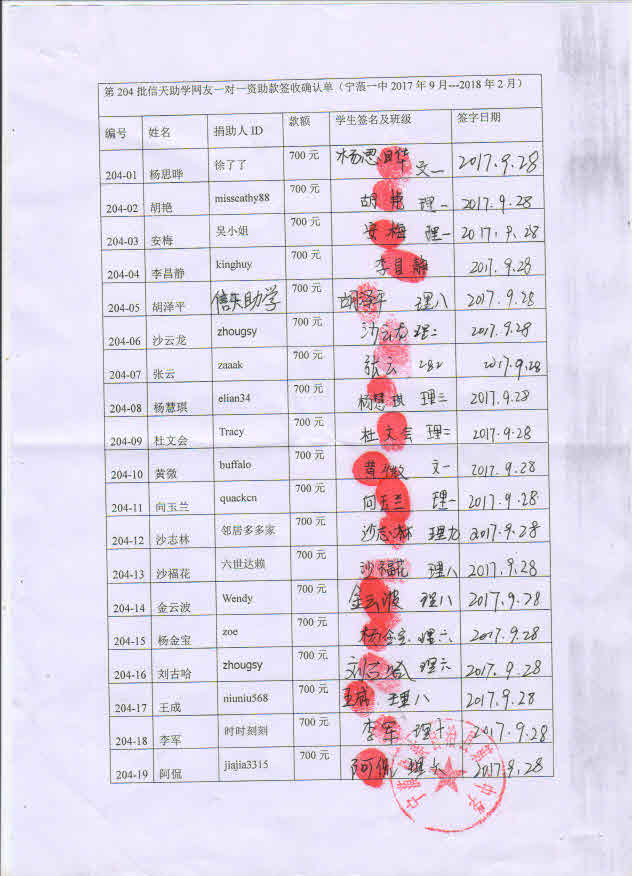 第 204 批信天助学网友一对一资助款签收确认单（宁蒗一中 2017 年 9 月---2018 年 2 月）
编号 姓名 捐助人 ID 款额 学生签名及班级 签字日期
204-01 杨思晔 徐了了 700 元 杨思晔 文一 2017.9.28
204-02 胡艳 misscathy88 700 元 胡艳 理一 2017.9.28
204-03 安梅 吴小姐 700 元 安梅 理一 2017.9.28
204-04 李昌静 kinghuy 700 元 李昌静 2017.9.28
204-05 胡泽平 信天助学 700 元 胡泽平 理八 2017.9.28
204-06 沙云龙 zhougsy 700 元 沙云龙 理二 2017.9.28
204-07 张云 zaaak 700 元 张云 2017.9.28
204-08 杨慧琪 elian34 700 元 杨慧琪 理三 2017.9.28
204-09 杜文会 Tracy 700 元 杜文会 理二 2017.9.28
204-10 黄微 buffalo 700 元 黄微 文一 2017.9.28
204-11 向玉兰 quackcn 700 元 向玉兰 理一 2017.9.28
204-12 沙志林 邻居多多家 700 元 沙志林 理九 2017.9.28
204-13 沙福花 六世达赖 700 元 沙福花 理八 2017.9.28
204-14 金云波 Wendy 700 元 金云波 理八 2017.9.28
204-15 杨金宝 zoe 700 元 杨金宝 理六 2017.9.28
204-16 刘古哈 zhougsy 700 元 刘古哈 理六 2017.9.28
204-17 王成 niuniu568 700 元 王成 理八 2017.9.28
204-18 李军 时时刻刻 700 元 李军 理十 2017.9.28
204-19 阿侃 jiajia3315 700 元 阿侃 理六 2017.9.28